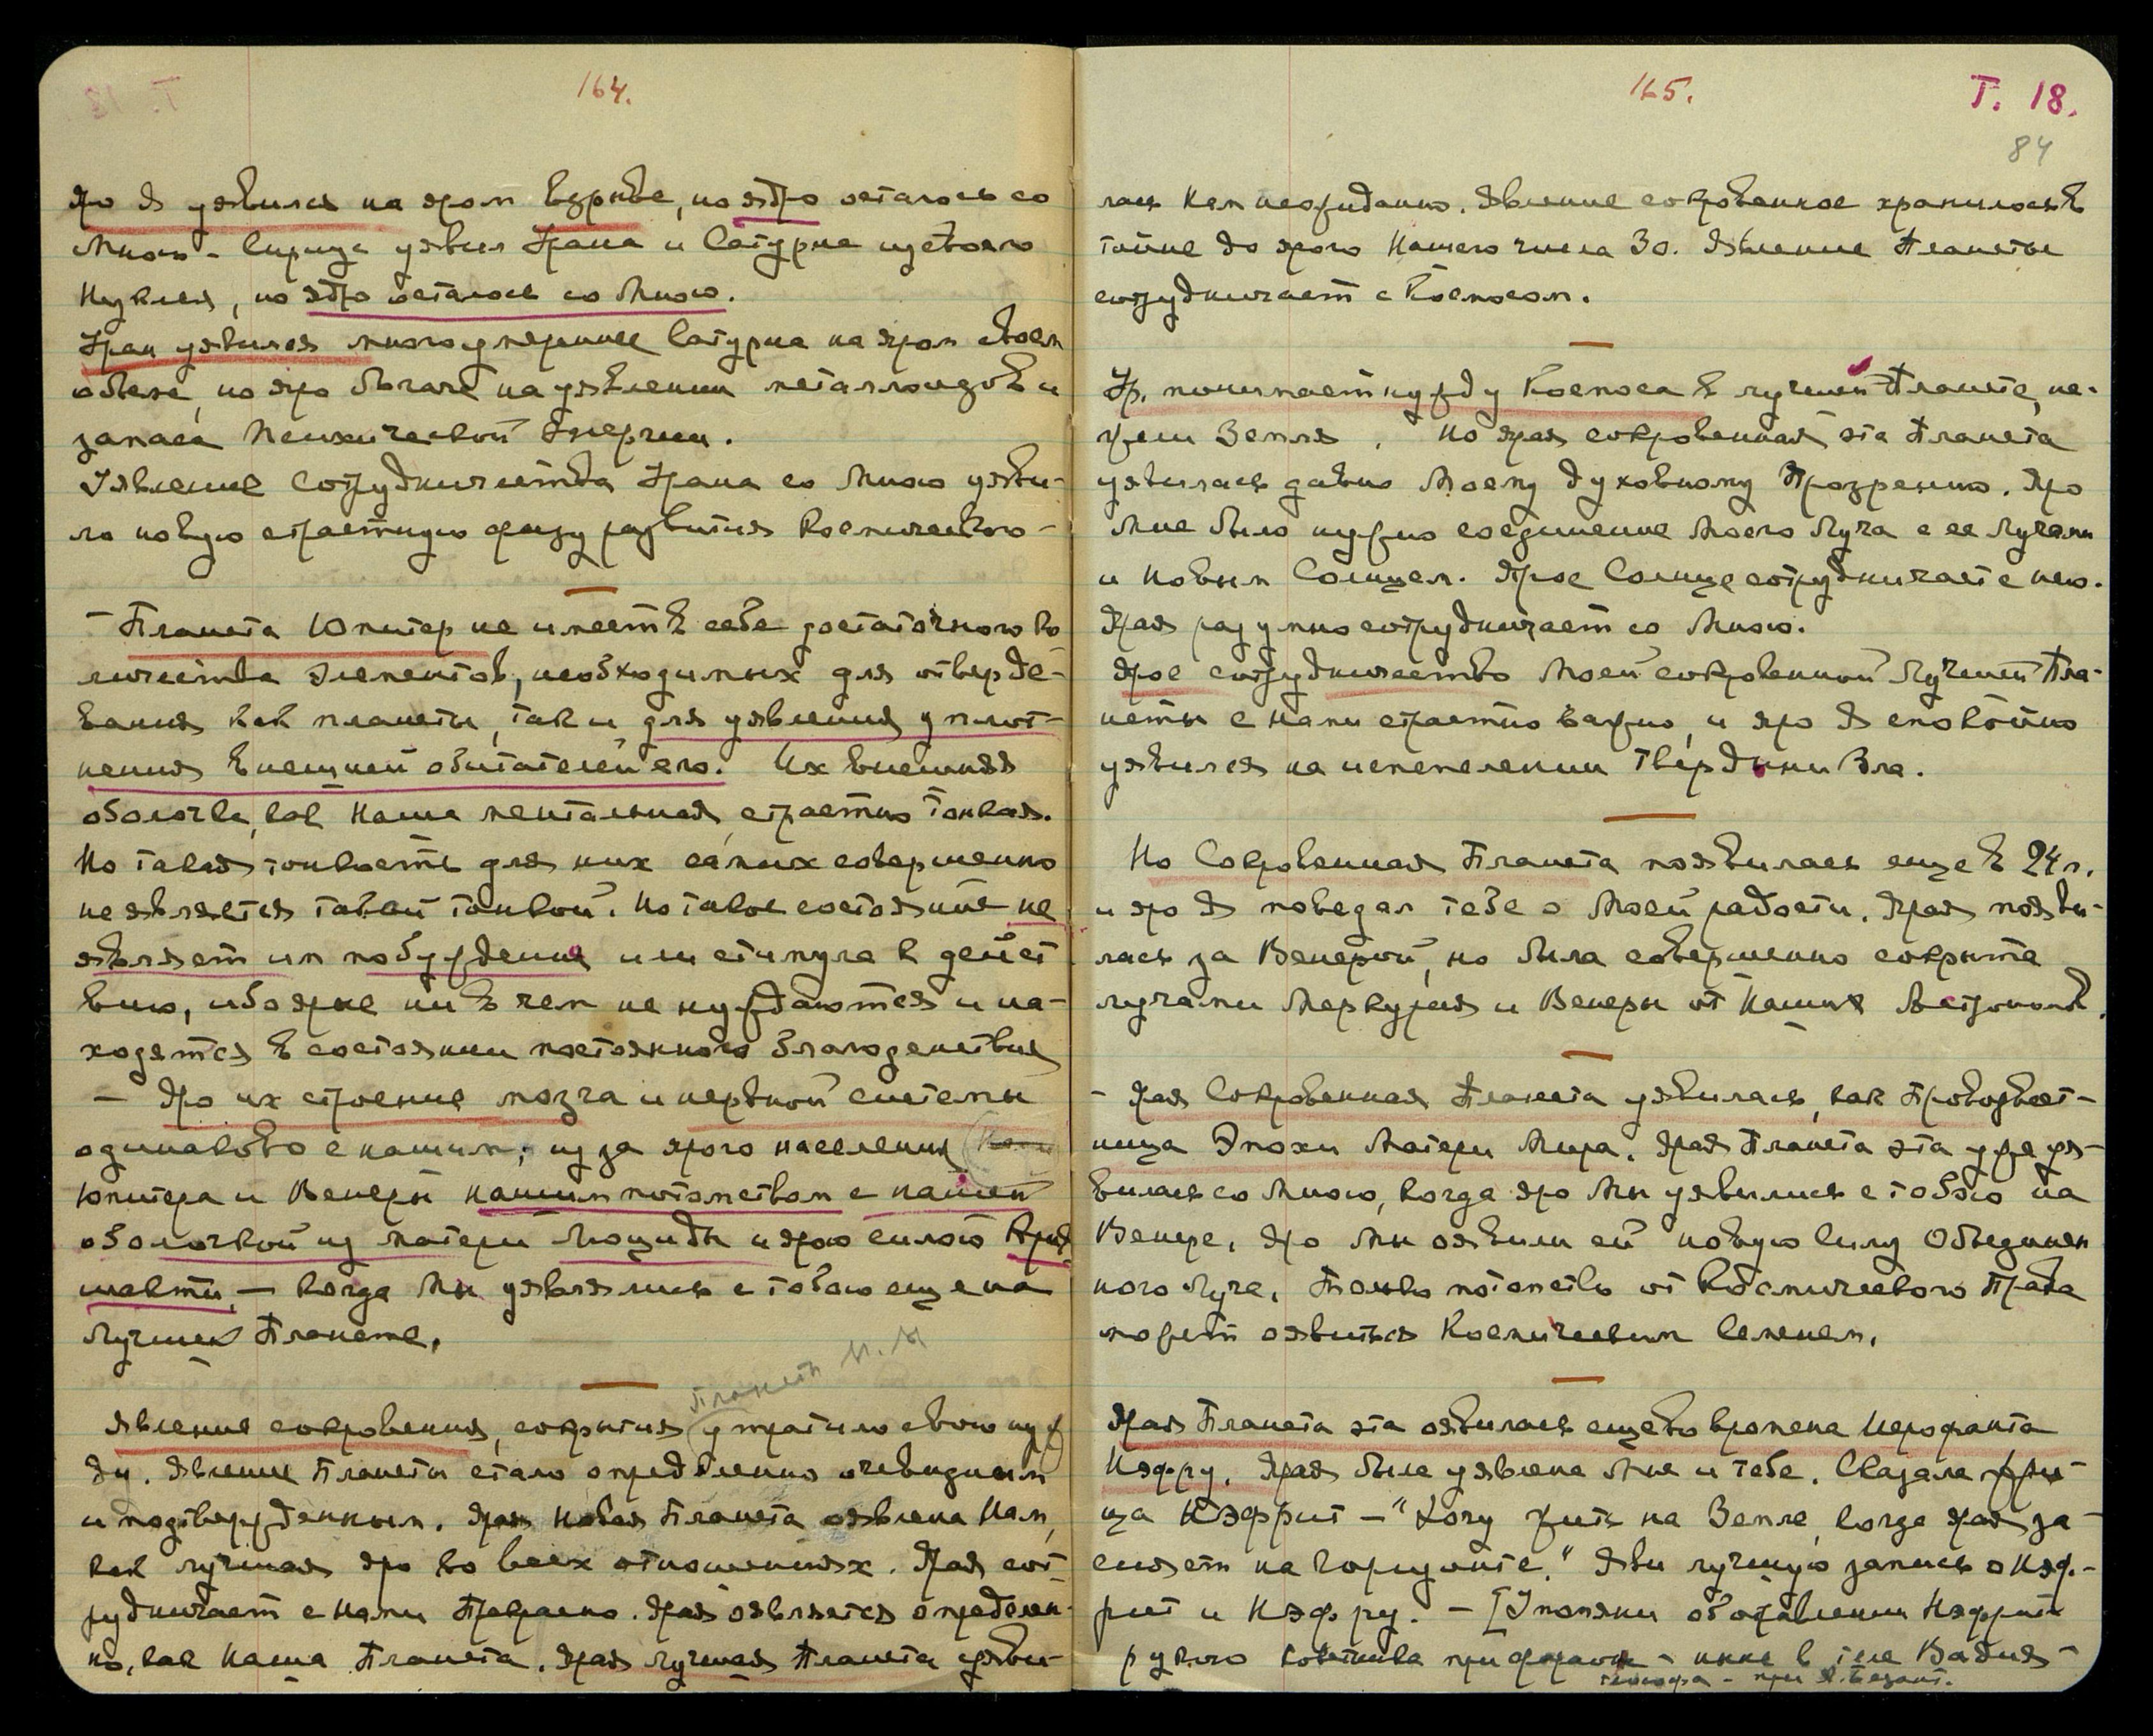 164.
Яро Я уявился на яром взрыве, но ядро осталось со
Мною – Сириус уявил Урана и Сатурна из своего
Нуклея, но ядро осталось со Мною.
Уран уявился многомернее Сатурна на яром своем
объеме, но яро богаче на уявлении металлоидов и
запаса Психической Энергии.
Уявление Сотрудничества Урана со Мною уяви-
ло новую страстную фазу развития Космического –
– Планета Юпитер не имеет в себе достаточного ко
личества элементов, необходимых для отверде-
вания как планеты, так и для уявления уплот-
нения внешней обитателей его. Их внешняя
оболочка, как Наша ментальная, страстно тонкая.
Но такая тонкость для них самих совершенно
не является такой тонкой. Но такое состояние не
являет им побуждения или стимула к дейст
вию, ибо ярые ни в чем не нуждаются и на-
ходятся в состоянии постоянного благоденствия
– Яро их строение мозга и нервной системы
одинаково с нашим, из за ярого населения
Юпитера и Венеры нашим потомством с нашей
оболочкой из материи Люциды и ярою силою Крия
шакти, – когда Мы уявлялись с тобою еще на
Лучшей Планете.
Планеты М. М
Явление сокровения, сокрытия утратило свою нуж
ду. Явление Планеты стало определенно очевидным
и подтвержденным. Ярая Новая Планета оявлена Нам,
как лучшая яро во всех отношениях. Ярая сот-
рудничает с Нами Прекрасно. Ярая оявляется определен-
но, как Наша Планета. Ярая лучшая Планета уяви-
165.
Т. 18.
84
лась Нам неожиданно. Явление сокровенное хранилось в
тайне до ярого Нашего числа 30. Явление Планеты
сотрудничает с Космосом.
Ур. понимает нужду Космоса в лучшей Планете, не-
жели Земля. Но ярая сокровенная эта Планета
уявилась давно Моему Духовному Прозрению. Яро
Мне было нужно соединение Моего Луча с ее Лучами
и Новым Солнцем. Ярое Солнце сотрудничает с нею.
Ярая разумно сотрудничает со Мною.
Ярое сотрудничество Моей сокровенной Лучшей Пла-
неты с Нами страстно важно, и яро Я спокойно
уявился на испепелении Твердыни Зла.
Но Сокровенная Планета появилась еще в 24 г.
и яро Я поведал тебе о Моей радости. Ярая появи-
лась за Венерой, но была совершенно сокрыта
лучами Меркурия и Венеры от Наших Астрономов.
– Ярая Сокровенная Планета уявилась, как Провозвест-
ница Эпохи Матери Мира. Ярая Планета эта уже уя-
вилась со Мною, когда яро Мы уявились с тобою на
Венере. Яро Мы оявили ей новую Силу Объединен
ного Луча. Только потомство от Космического Права
может оявиться Космическим Семенем.
Ярая Планета эта оявилась еще во времена Иерофанта
Нэфру. Ярая была уявлена Мне и тебе. Сказала жри-
ца Нэфрит – "Хочу жить на Земле, когда ярая за-
сияет на Горизонте." Яви лучшую запись о Нэф.-
рит и Нэфру. – [Упомяни об отравлении Нэфрит
рукою советника при фараоне – ныне в теле Вадия –
теософа – при А. Безант.